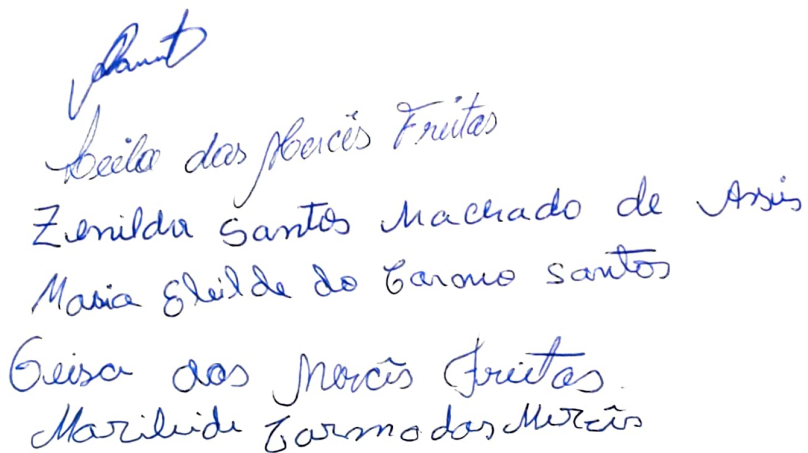 Leila das Mercês Freitas
Zenilda Santos Machado de Assis
Maria Eleilde do Carmo Santos
Geisa das Mercês Freitas
Marileide Carmo das Mercês